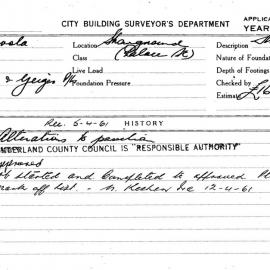 CITY BUILDING SURVEYOR'S DEPARTMENT
APPLICA
YEAR
Location Showground
Description
Class (Palace
Nature of Foundat
Live Load
Depth of Footings
& Geiger
Foundation Pressure
Checked by
Estimate £16
Rec. 5-4-61 HISTORY
Alterations to pavilion
ERLAND COUNTY COUNCIL IS "RESPONSIBLE AUTHORITY"
Approved
started and completed to approved
mark off list. - 12-4-61